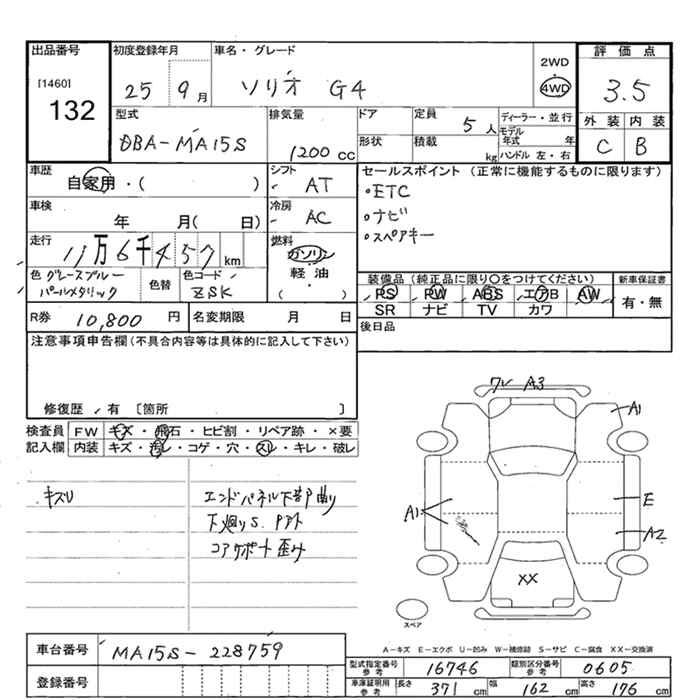 出品番号 初度登録年月 車名・グレード 2WD 評価点
[1460] 132 25 9月 ソリオ G4 4WD 3.5
型式 排気量 ドア 定員 5人 ディーラー・並行 外装 内装
DBA-MA15S 1200 CC 形状 積載 kg モデル年式 年 C B
ハンドル 左・右
車歴 シフト セールスポイント (正常に機能するものに限ります)
自家用・( ) AT ・ETC
車検 冷房 ・ナビ
年 月( 日) AC ・スペアキー
走行 燃料
11万6千457km ガソリン
色 グレースブルーパールメタリック 色替 色コード ZSK 軽油 ( )
装備品 (純正品に限り○をつけてください) 新車保証書
PS PW ABS エアB AW 有・無
SR ナビ TV カワ
R券 10,800円 名変期限 月 日 後日品
注意事項申告欄(不具合内容等は具体的に記入して下さい)
修復歴 有 [箇所 ]
検査員 FW キズ・飛石・ヒビ割・リペア跡・×要
記入欄 内装 キズ・汚レ・コゲ・穴・スレ・キレ・破レ
キズリ エンドパネル下部曲り
下廻りS.
コアサポート歪み
ワレ A3
A1
A1 E
A2
XX
スペア
A-キズ E-エクボ U-凹み W-補修跡 S-サビ C-腐食 XX-交換済
車台番号 MA15S-228759
登録番号
型式指定番号 参考 16746 類別区分番号 参考 0605
車庫証明用 参考 長さ 371cm 幅 162cm 高さ 176cm